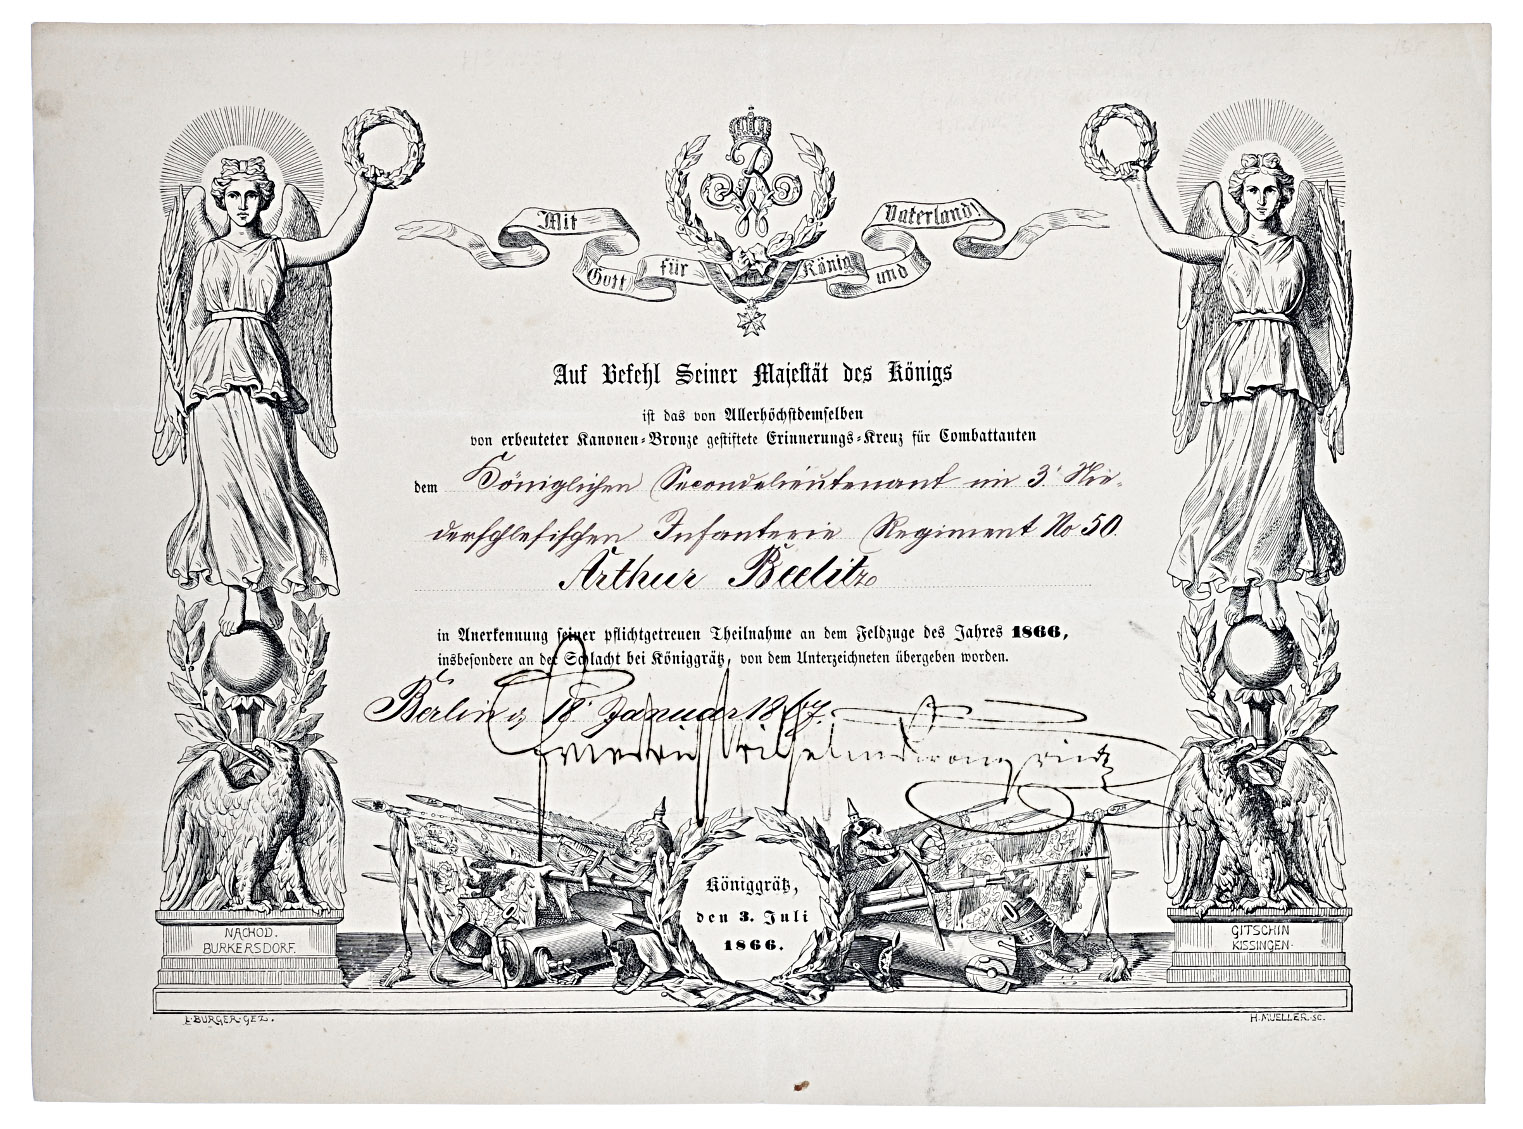 Mit Gott für König und Vaterland!
Auf Befehl Seiner Majestät des Königs
ist das von Allerhöchstdemselben
von erbeuteter Kanonen-Bronze gestiftete Erinnerungs-Kreuz für Combattanten
dem Königlichen Secondelieutenant im 3. Nie-
derschlesischen Infanterie Regiment No 50.
Arthur Beelitz
in Anerkennung seiner pflichtgetreuen Theilnahme an dem Feldzuge des Jahres 1866,
insbesondere an der Schlacht bei Königgrätz, von dem Unterzeichneten übergeben worden.
Berlin, 18. Januar 1867.
Friedrich Wilhelm Kronprinz
Königgrätz,
den 3. Juli
1866.
NACHOD.
BURKERSDORF.
GITSCHIN
KISSINGEN.
L. BURGER. GEZ.
H. MUELLER. SC.